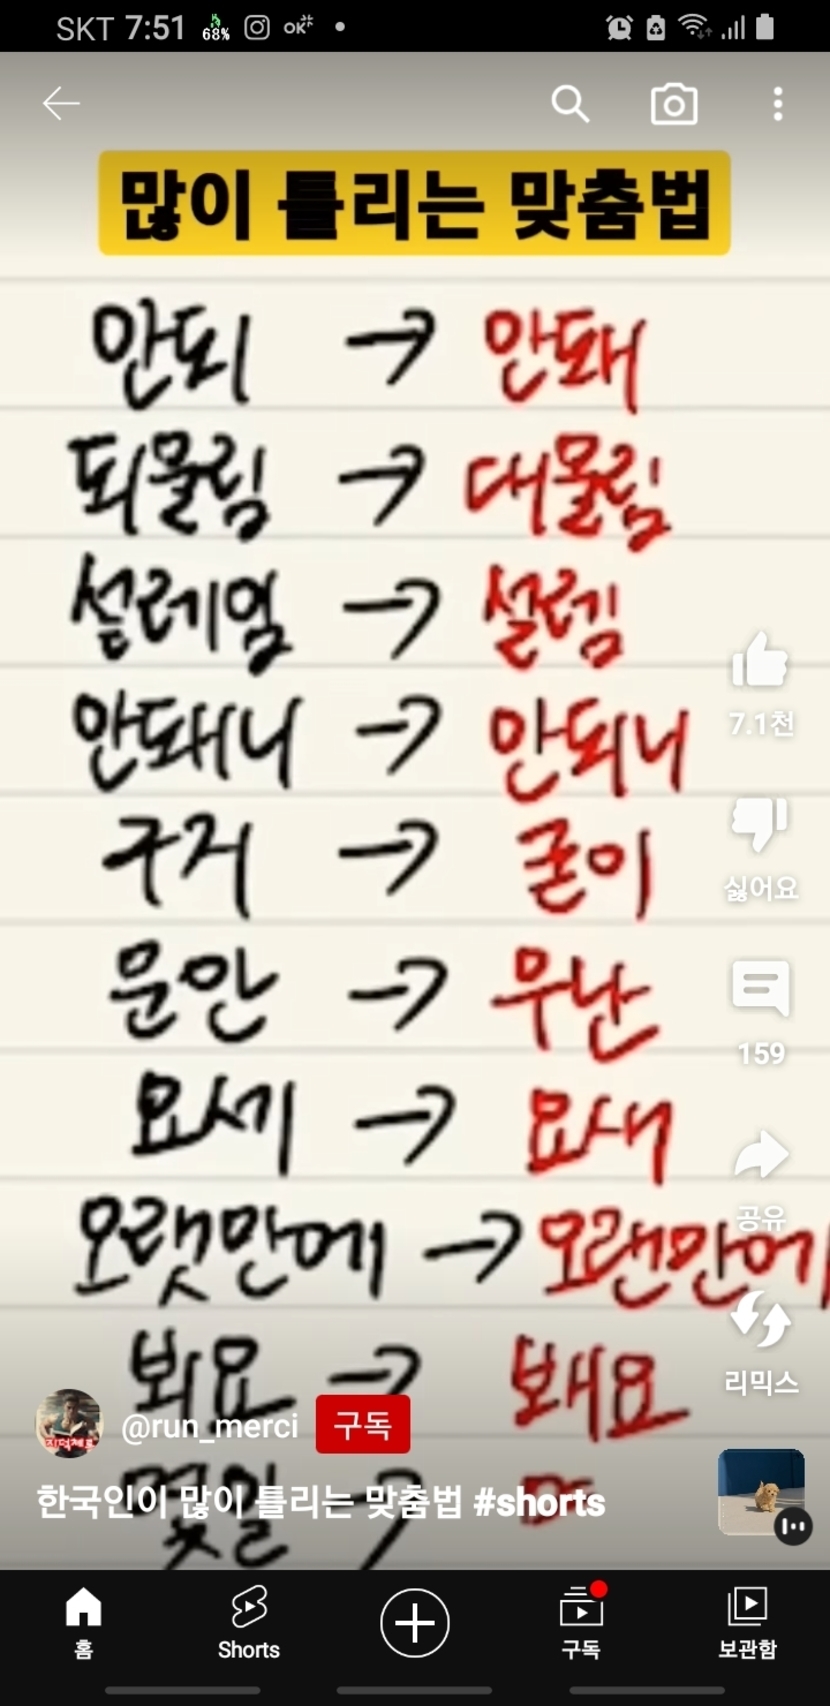 SKT 7:51 68% OK
많이 틀리는 맞춤법
안되 → 안돼
되물림 → 대물림
설레임 → 설렘
안돼니 → 안되니
구지 → 굳이
문안 → 무난
요세 → 요새
오랫만에 → 오랜만에
봐요 → 봬요
7.1천
싫어요
159
공유
리믹스
@run_merci 구독
한국인이 많이 틀리는 맞춤법 #shorts
홈 Shorts 구독 보관함